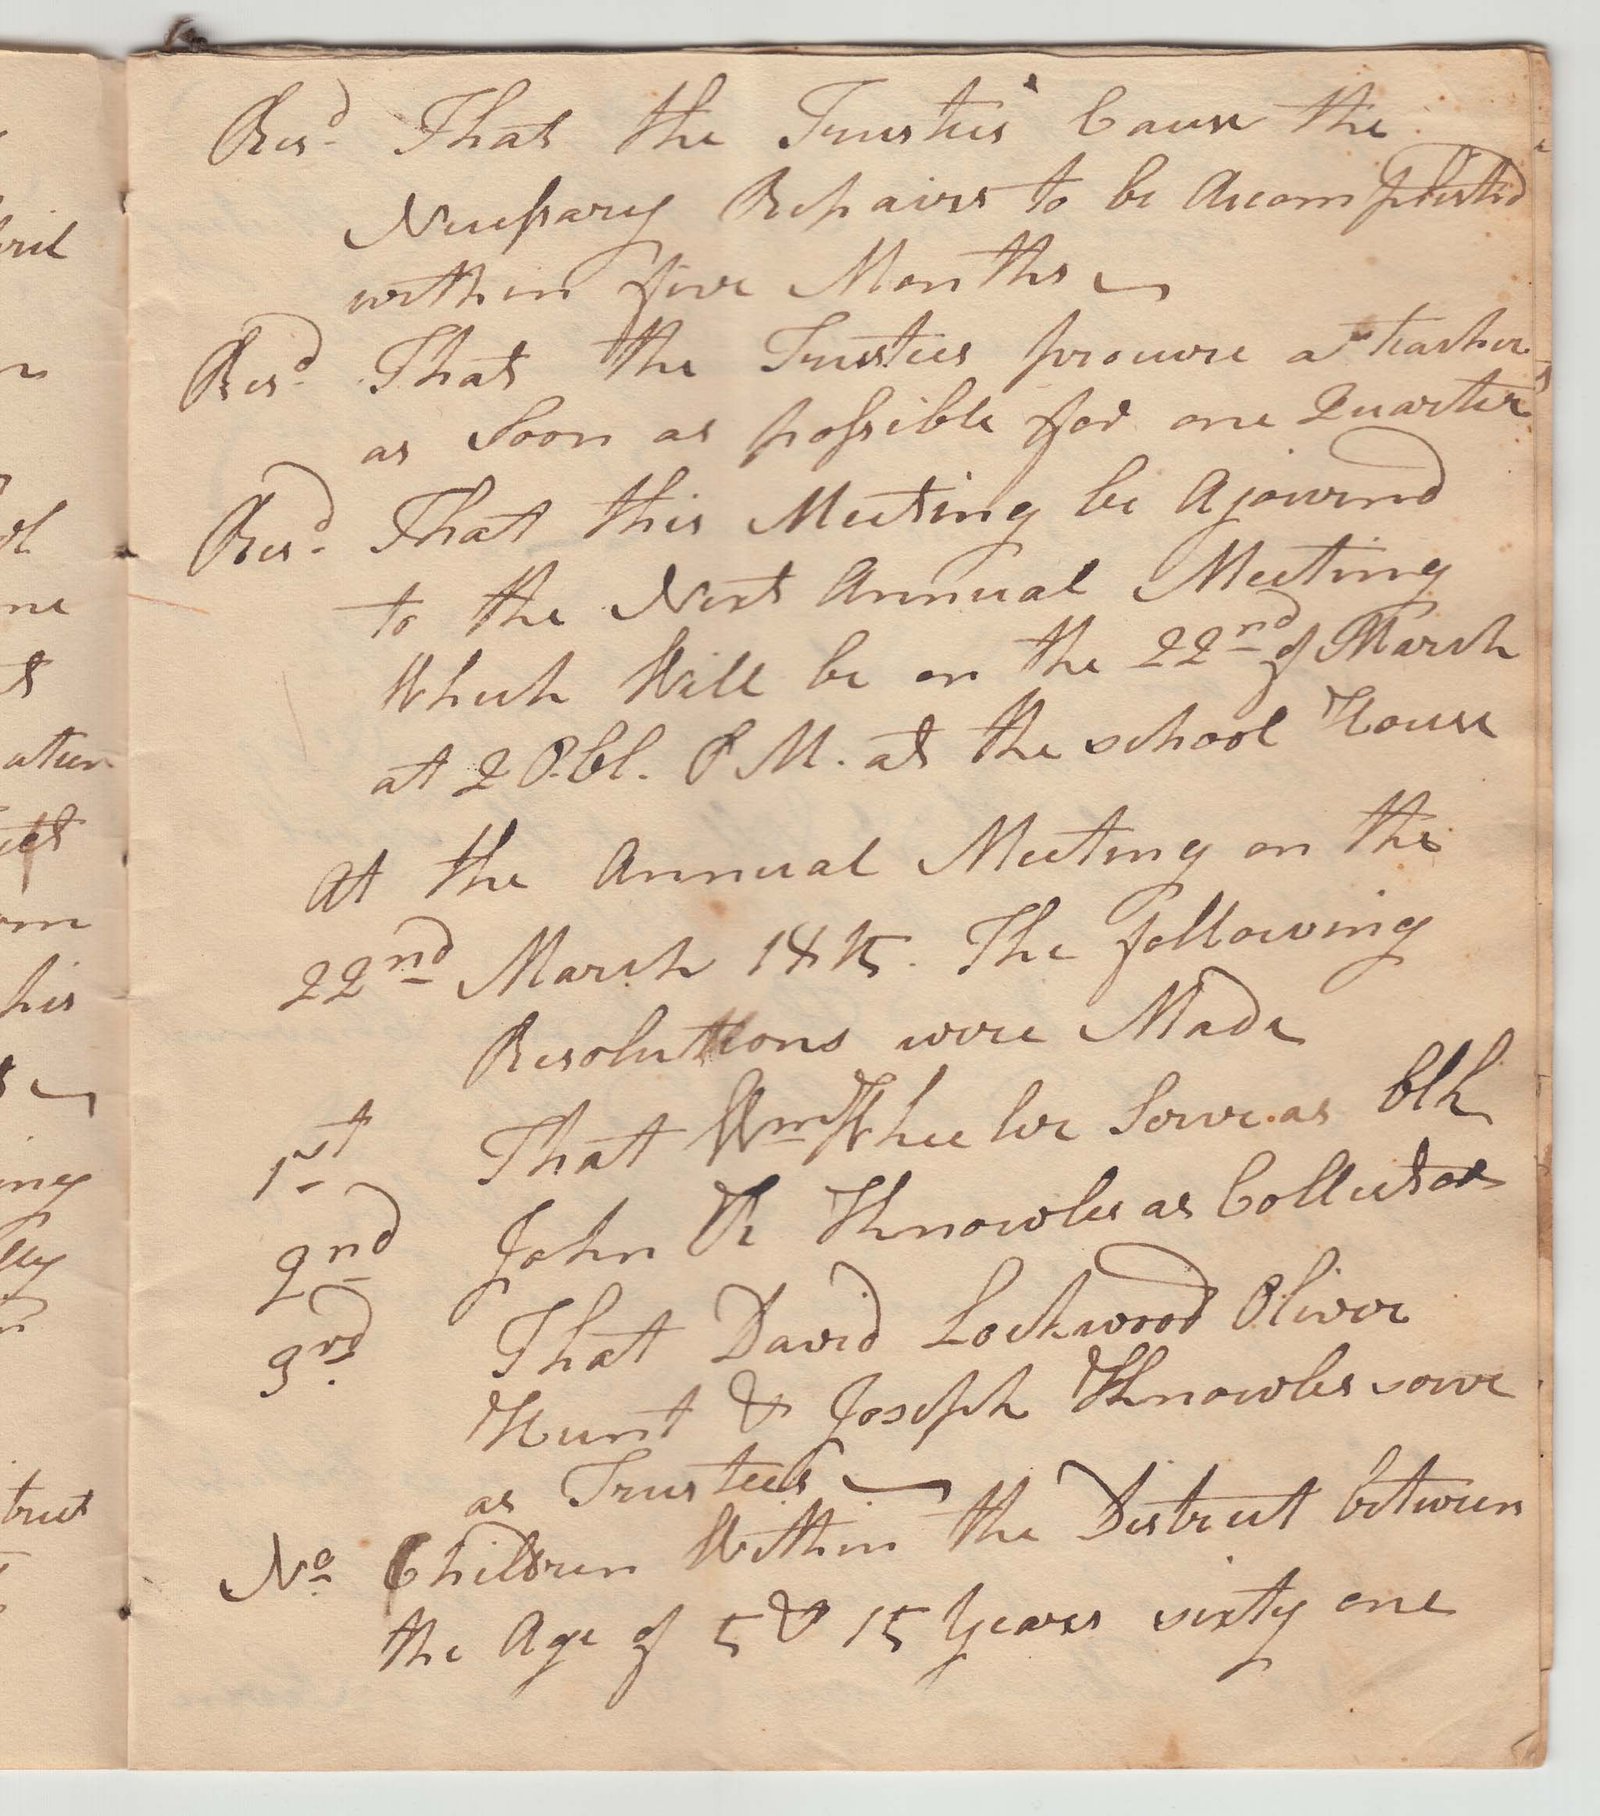 Resd That the Trustees Cause the
Necessary Repairs to be Accomplished
within five Months
Resd That the Trustees procure a teacher
as Soon as possible for one Quarter
Resd That this Meeting be Ajournd
to the Next Annual Meeting
Which Will be on the 22nd of March
at 2 O.Cl. P M. at the school House
At the Annual Meeting on the
22nd March 1815. The following
Resolutions were Made
1st That Wm Wheeler Serve as Clk
2nd John R Knowles as Collector
3rd That David Lockwood Oliver
Hunt & Joseph Knowles serve
as Trustees
No Children Within the District between
the Age of 5 & 15 Years sixty one